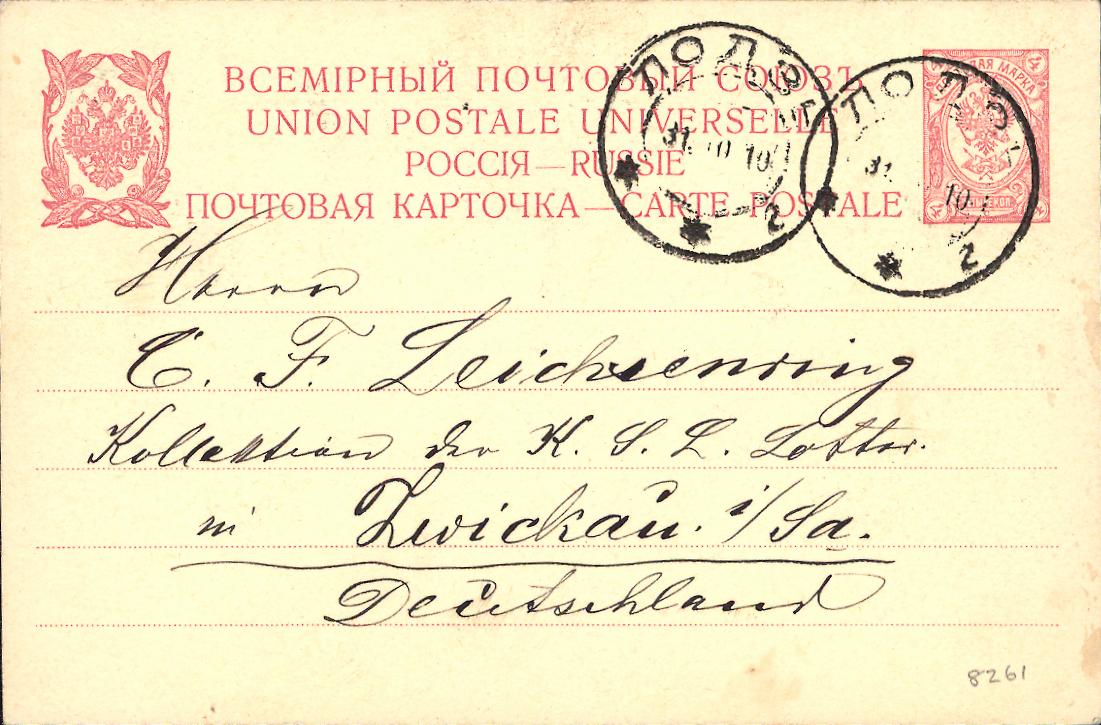 ВСЕМІРНЫЙ ПОЧТОВЫЙ СОЮЗЪ
UNION POSTALE UNIVERSELLE
РОССІЯ — RUSSIE
ПОЧТОВАЯ КАРТОЧКА — CARTE POSTALE
МАРКА
31. 10 10
2
31. 10
2
Herrn
C. F. Leichsenring
Kollektion der K. S. L. Lotter.
in Zwickau. i/Sa.
Deutschland
8261